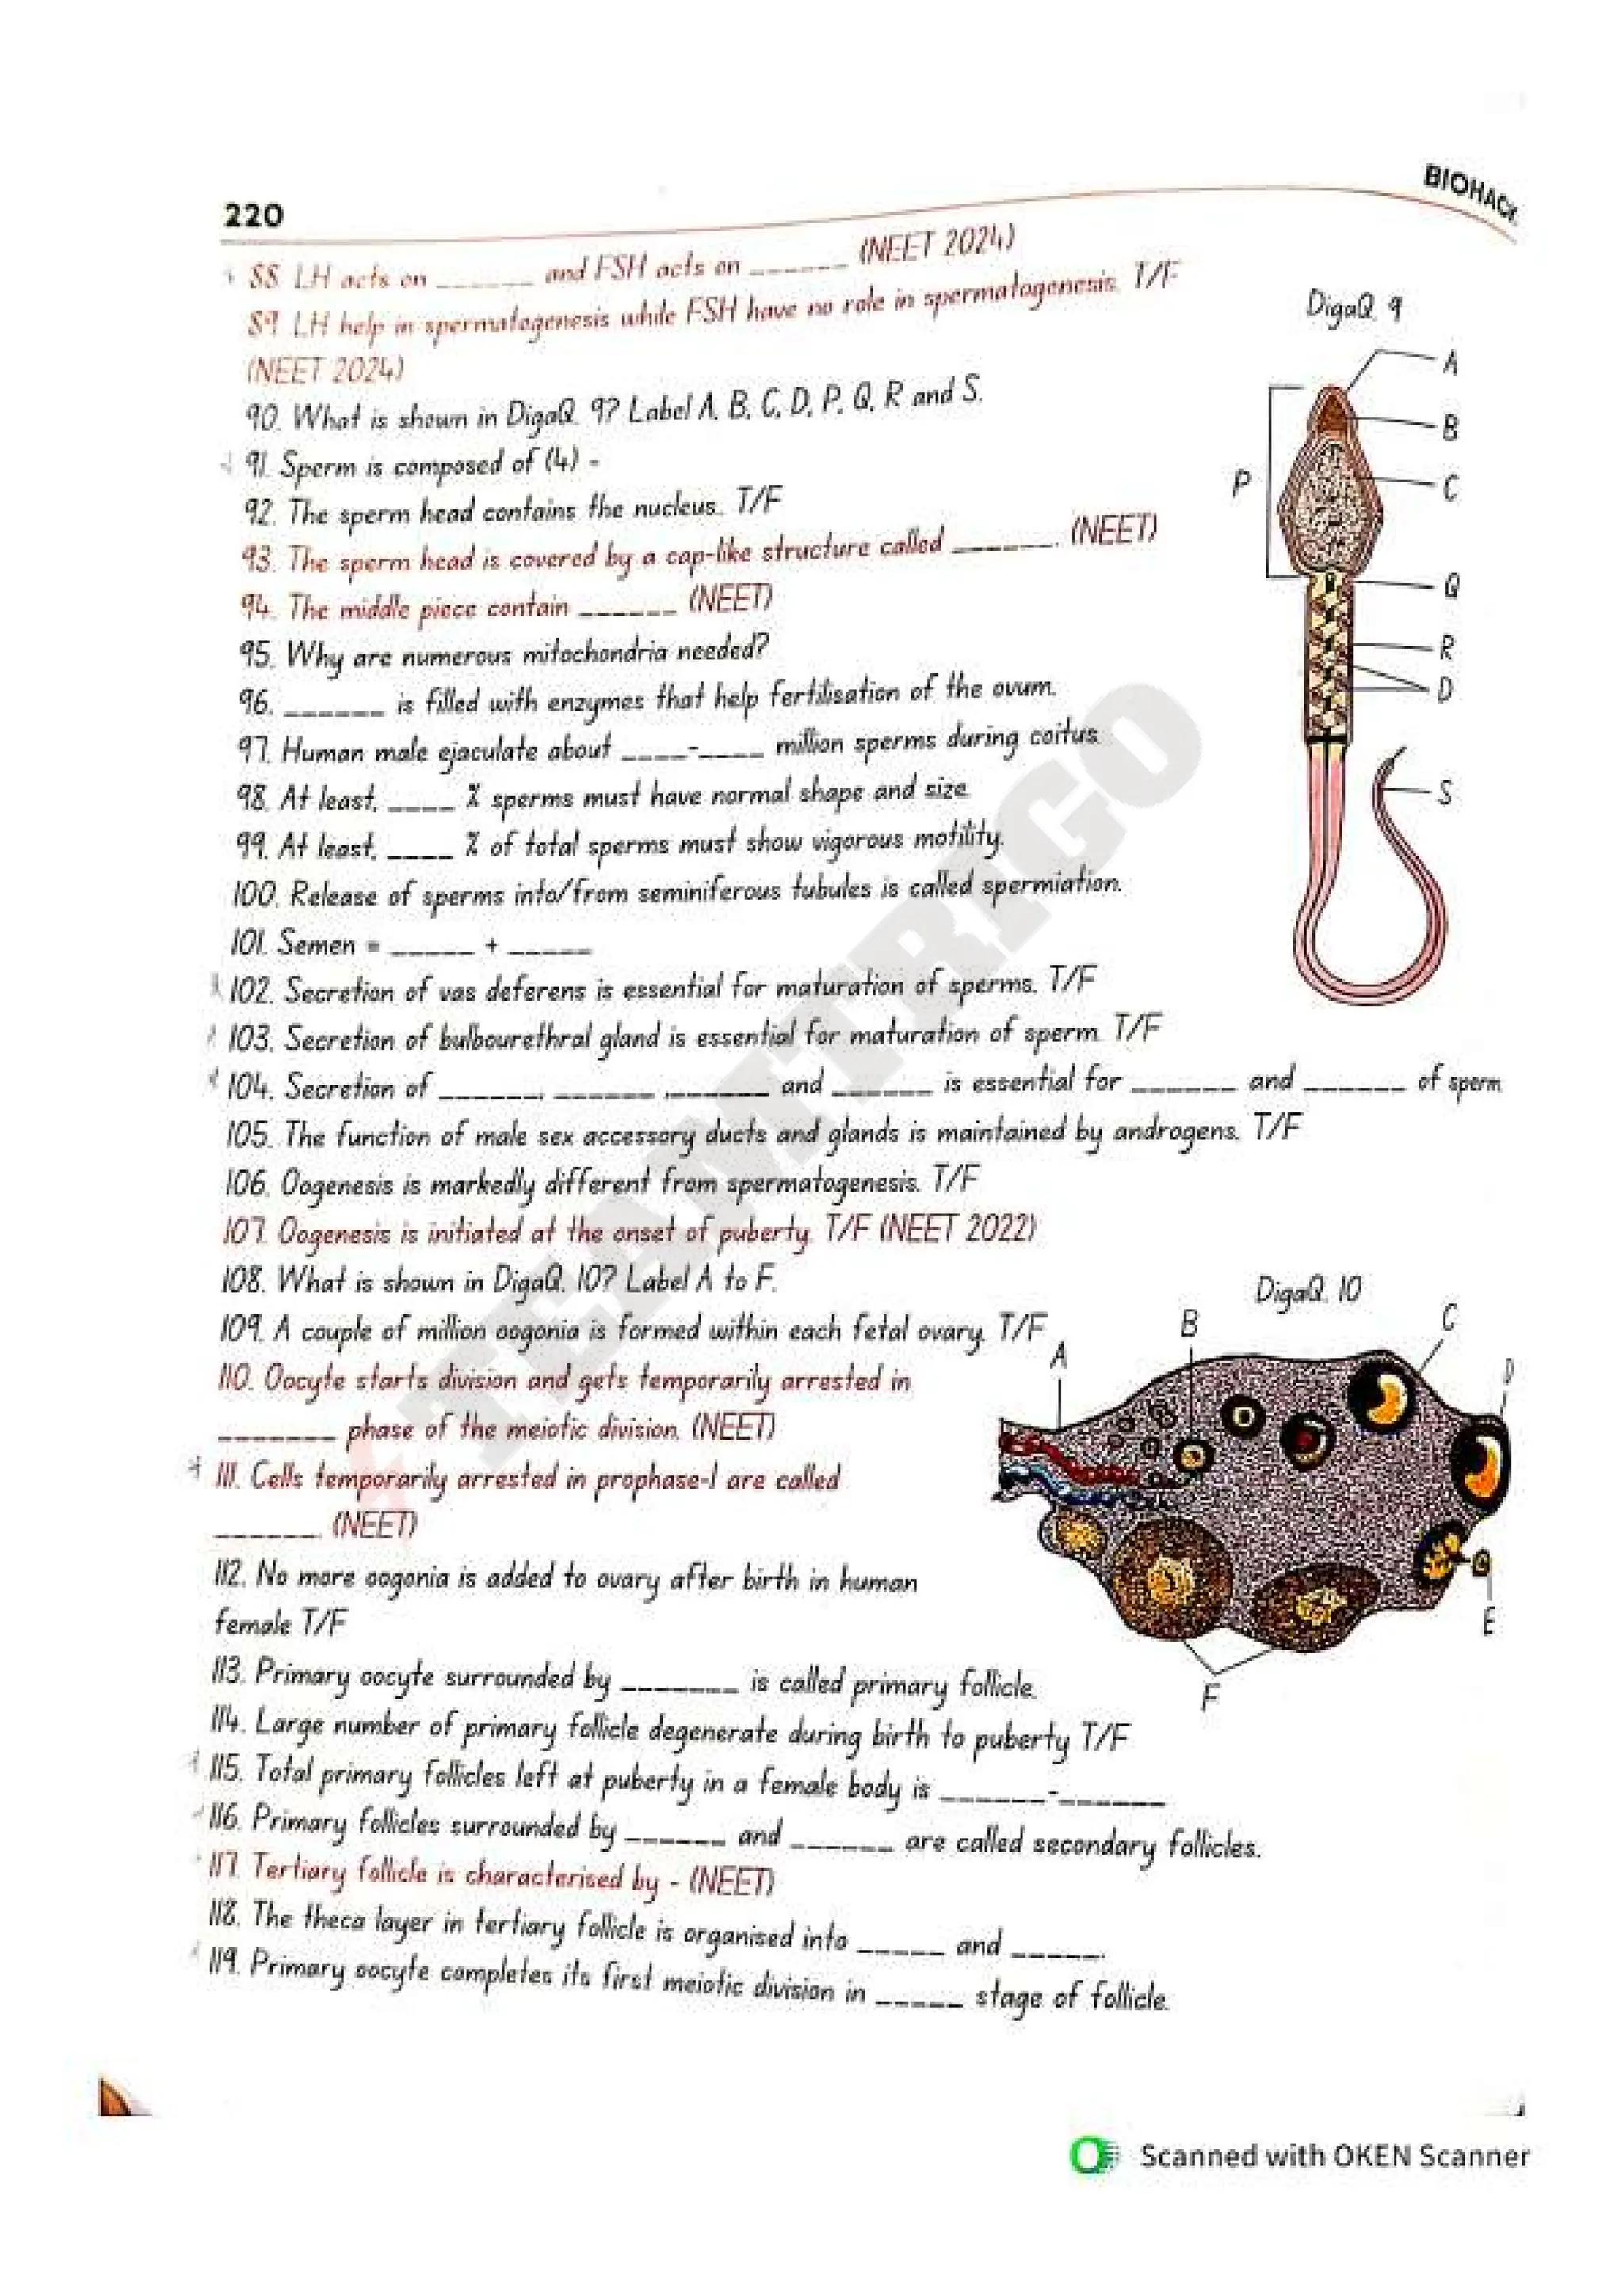 BIOHACK
220
88. LH acts on ______ and FSH acts on ______ (NEET 2024)
89. LH help in spermatogenesis while FSH have no role in spermatogenesis. T/F
(NEET 2024)
90. What is shown in DigaQ. 9? Label A, B, C, D, P, Q, R and S.
91. Sperm is composed of (4) -
92. The sperm head contains the nucleus. T/F
93. The sperm head is covered by a cap-like structure called ______. (NEET)
94. The middle piece contain ______ (NEET)
95. Why are numerous mitochondria needed?
96. ______ is filled with enzymes that help fertilisation of the ovum.
97. Human male ejaculate about ____-____ million sperms during coitus.
98. At least, ____ % sperms must have normal shape and size.
99. At least, ____ % of total sperms must show vigorous motility.
100. Release of sperms into/from seminiferous tubules is called spermiation.
101. Semen = _____ + _____
102. Secretion of vas deferens is essential for maturation of sperms. T/F
103. Secretion of bulbourethral gland is essential for maturation of sperm. T/F
104. Secretion of ______, ______ ,______ and ______ is essential for ______ and ______ of sperm
105. The function of male sex accessory ducts and glands is maintained by androgens. T/F
106. Oogenesis is markedly different from spermatogenesis. T/F
107. Oogenesis is initiated at the onset of puberty. T/F (NEET 2022)
108. What is shown in DigaQ. 10? Label A to F.
109. A couple of million oogonia is formed within each fetal ovary. T/F
110. Oocyte starts division and gets temporarily arrested in
_______ phase of the meiotic division. (NEET)
111. Cells temporarily arrested in prophase-I are called
______. (NEET)
112. No more oogonia is added to ovary after birth in human
female T/F
113. Primary oocyte surrounded by _______ is called primary follicle.
114. Large number of primary follicle degenerate during birth to puberty T/F
115. Total primary follicles left at puberty in a female body is ______-______
116. Primary follicles surrounded by ______ and ______ are called secondary follicles.
117. Tertiary follicle is characterised by - (NEET)
118. The theca layer in tertiary follicle is organised into _____ and _____.
119. Primary oocyte completes its first meiotic division in _____ stage of follicle.
DigaQ. 9
A
B
P
C
Q
R
D
S
DigaQ. 10
A
B
C
D
E
F
TEAMTRIGO
Scanned with OKEN Scanner